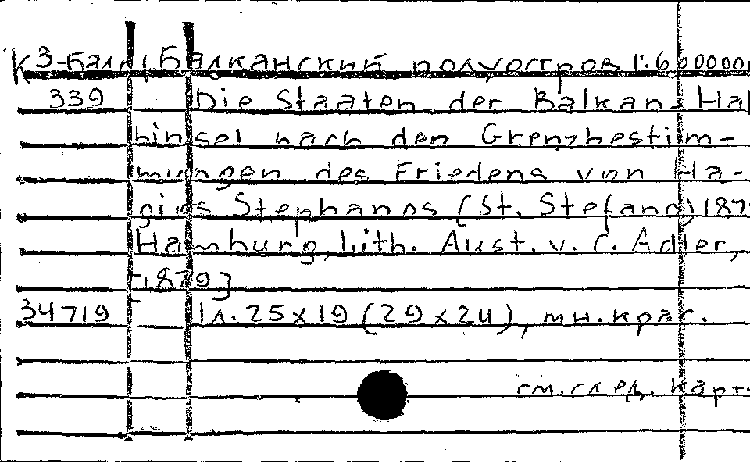 К 3-Балк/ Балканский полуостров 1:6000000
339 Die Staaten der Balkan-Hal
binsel nach den Grenzbestim-
mungen des Friedens von Ha-
gios Stephanos (St. Stefano) 187
Hamburg, Lith. Anst. v. C. Adler,
[1879]
34719 1л. 25x19 (29x24), мн. крас.
см. след. карт